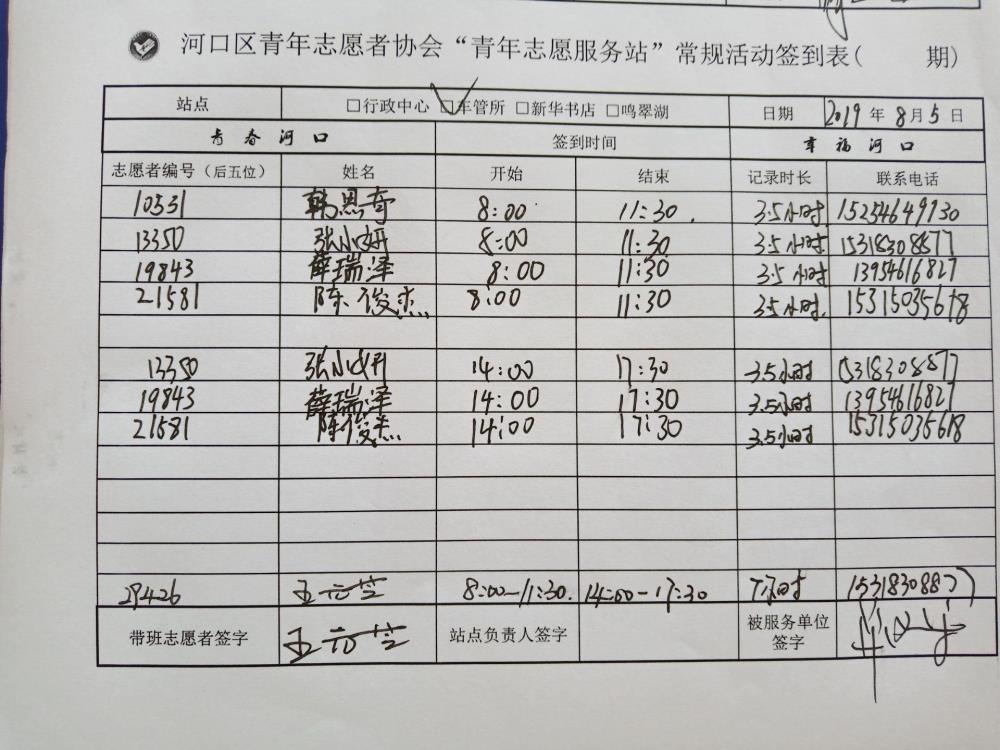 河口区青年志愿者协会“青年志愿服务站”常规活动签到表( 期)
站点 □行政中心 □车管所 □新华书店 □鸣翠湖 日期 2019年8月5日
青春河口 签到时间 幸福河口
志愿者编号(后五位) 姓名 开始 结束 记录时长 联系电话
10531 韩思奇 8:00 11:30. 3.5小时 15254649130
13350 张小妍 8:00 11:30 3.5小时 15318308877
19843 薛瑞泽 8:00 11:30 3.5小时 13954616827
21581 陈俊杰 8:00 11:30 3.5小时. 15315035618
13350 张小妍 14:00 17:30 3.5小时 15318308877
19843 薛瑞泽 14:00 17:30 3.5小时 13954616827
21581 陈俊杰 14:00 17:30 3.5小时 15315035618
29426 8:00-11:30. 14:00-17:30 7小时 15318308877
带班志愿者签字 站点负责人签字 被服务单位签字